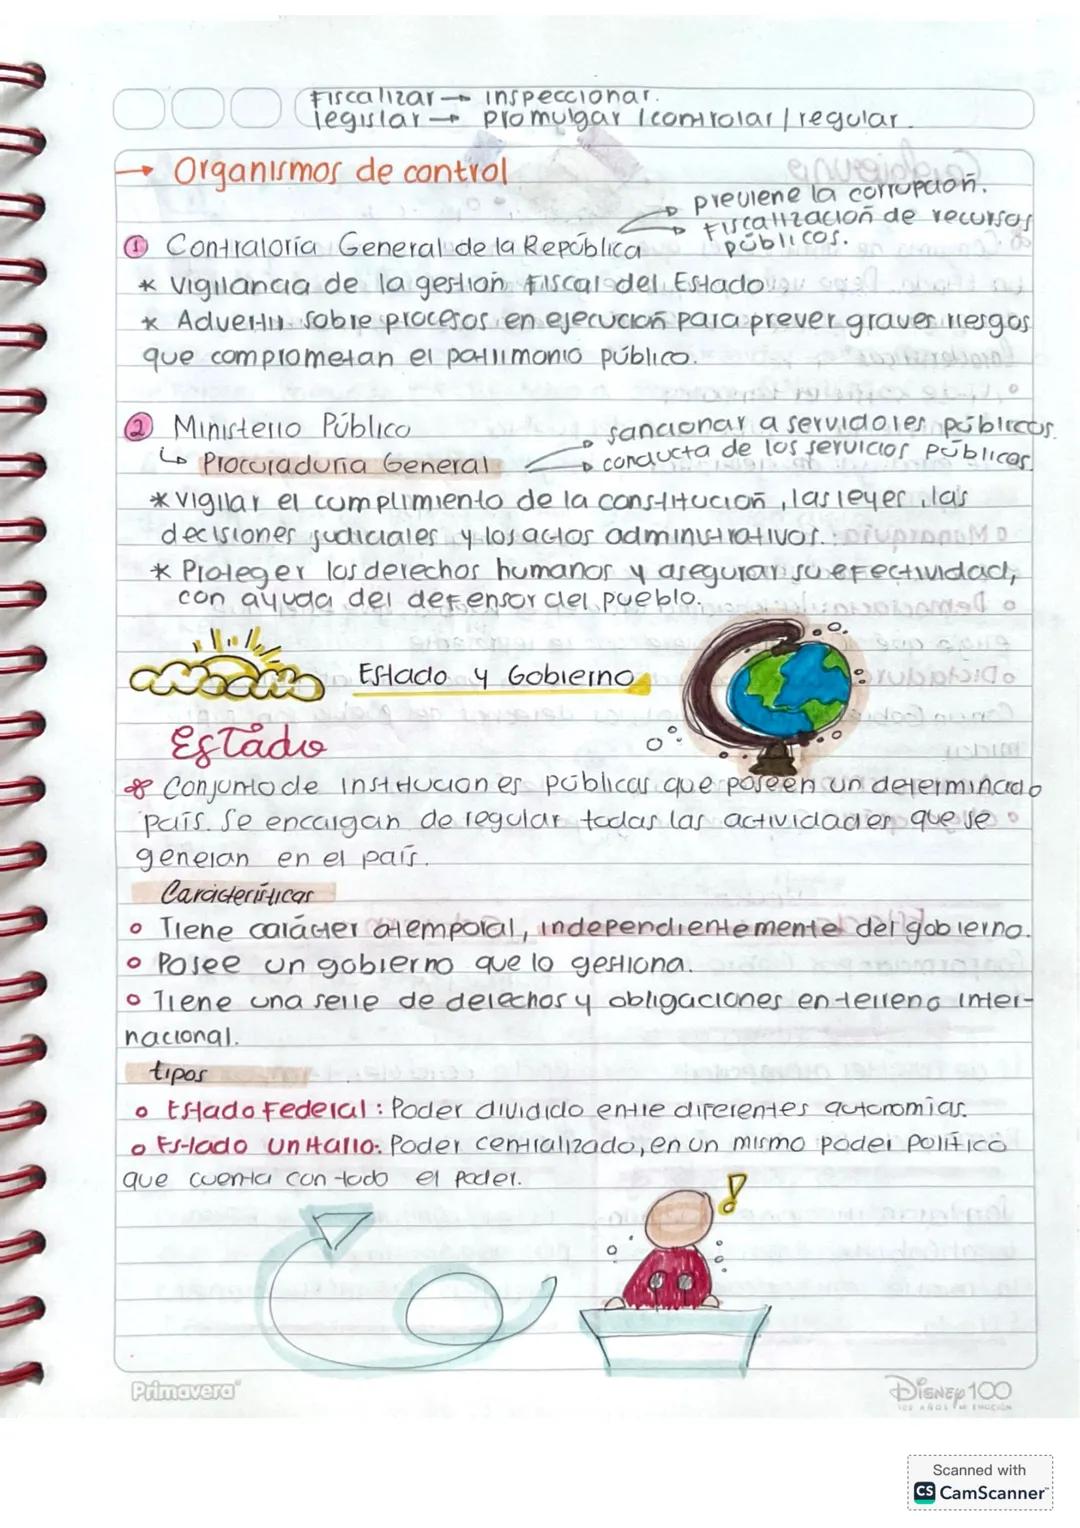 Fiscalizar → inspeccionar.
legislar → promulgar / controlar / regular.
→ Organismos de control
→ previene la corrupción.
→ Fiscalización de recursos
públicos.
① Contraloría General de la República
* Vigilancia de la gestión fiscal del Estado
* Advertir sobre procesos en ejecución para prever graves riesgos
que comprometan el patrimonio público.
② Ministerio Público
↳ Procuraduría General
→ sancionar a servidores públicos.
→ conducta de los servicios públicos
* Vigilar el cumplimiento de la constitución, las leyes, las
decisiones judiciales y los actos administrativos.
* Proteger los derechos humanos y asegurar su efectividad,
con ayuda del defensor del pueblo.
Estado y Gobierno
Estado
* Conjunto de instituciones públicas que poseen un determinado
país. Se encargan de regular todas las actividades que se
generan en el país.
Características
° Tiene carácter atemporal, independientemente del gobierno.
° Posee un gobierno que lo gestiona.
° Tiene una serie de derechos y obligaciones en terreno inter-
nacional.
tipos
° Estado Federal: Poder dividido entre diferentes autonomías.
° Estado Unitario: Poder centralizado, en un mismo poder político
que cuenta con todo el poder.
Primavera
Disney 100
100 AÑOS DE EMOCIÓN
Scanned with
CS CamScanner